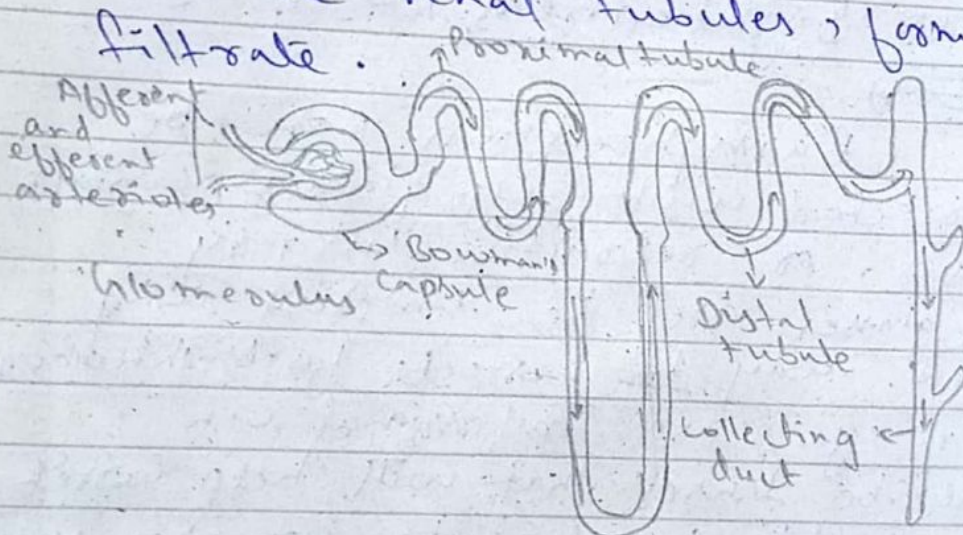 renal tubules, form
filtrate.
Proximal tubule
Afferent
and
efferent
arterioles
Bowman's
Capsule
Glomerulus
Distal
tubule
Collecting
duct